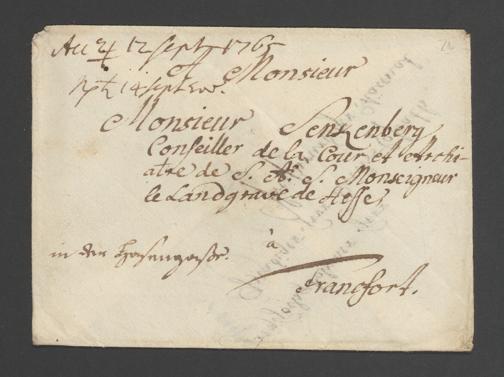 Acc ♃ 12 Sept 1765
Monsieur
Rpt. 14 Sept
Monsieur Senkenberg
Conseiller de la Cour et Archi-
atre de S. A. S. Monseigneur
le Landgrave de Hesse,
à
in der Hasengaße.
Francfort.